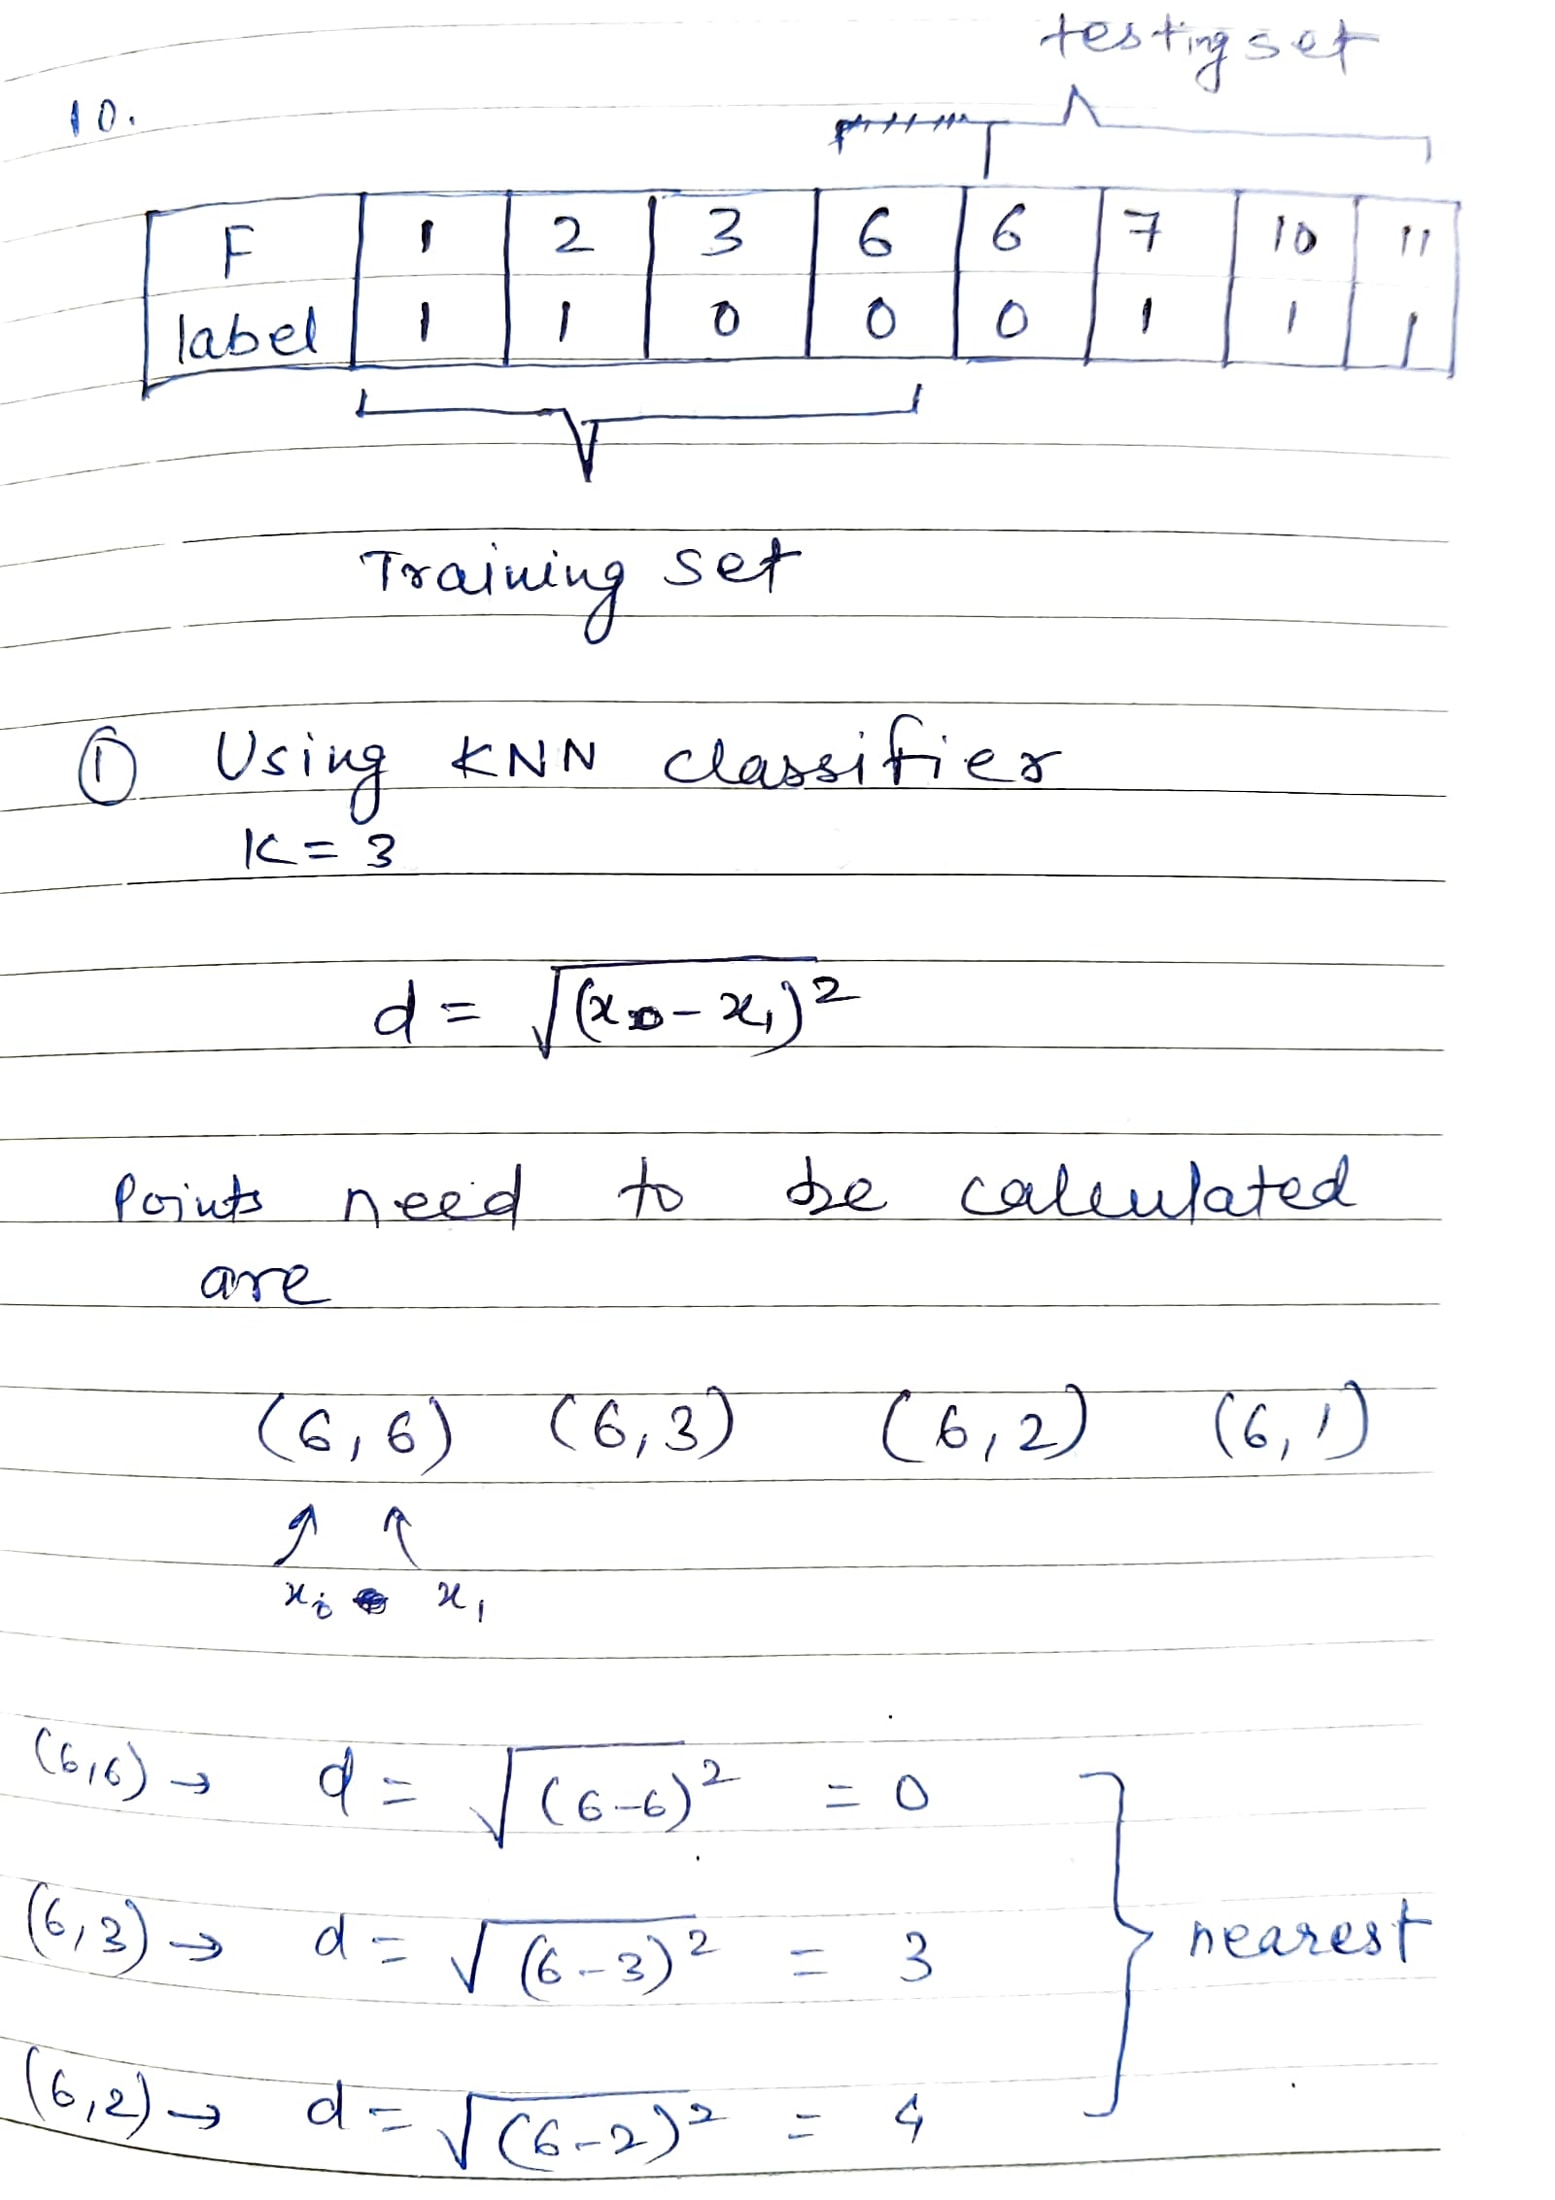 testing set
10.
F 1 2 3 6 6 7 10 11
label 1 1 0 0 0 1 1 1
Training set
① Using KNN classifier
K = 3
d = √(x₀ - x₁)²
Points need to be calculated
are
(6,6) (6,3) (6,2) (6,1)
x₁
(6,6) → d = √(6-6)² = 0
(6,3) → d = √(6-3)² = 3
nearest
(6,2) → d = √(6-2)² = 4